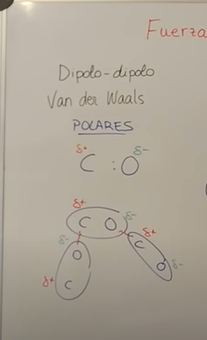 Fuerza
Dipolo-dipolo
Van der Waals
POLARES
δ+ δ-
C : O
δ+
C O δ-
δ- O
δ+ C
δ+
C
O δ-